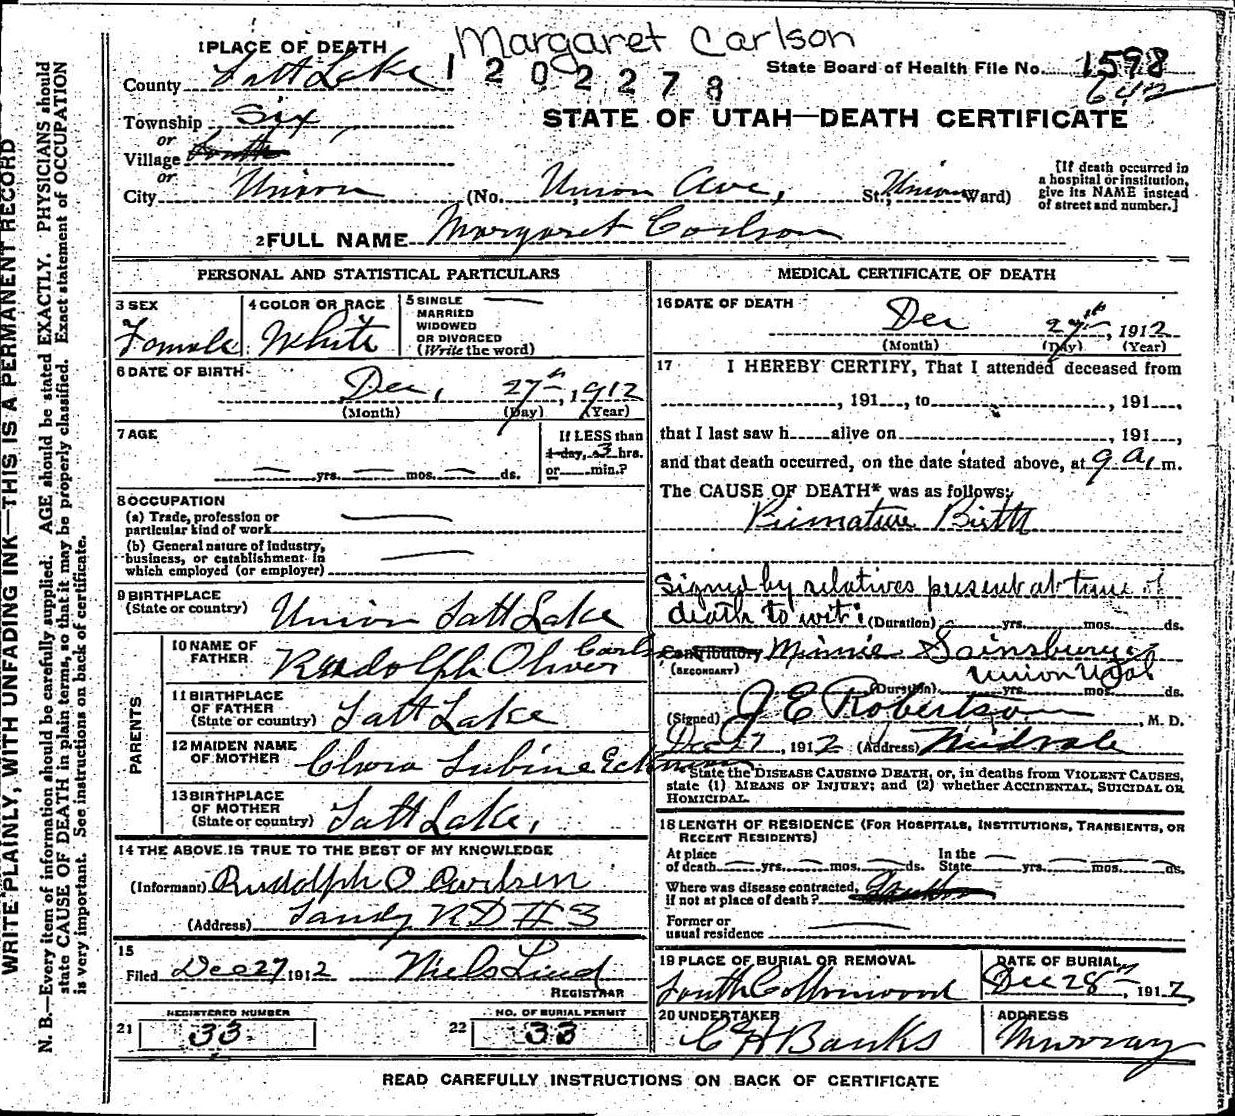 Margaret Carlson
1 PLACE OF DEATH
1202278
State Board of Health File No. 1598
642
County Salt Lake
STATE OF UTAH—DEATH CERTIFICATE
Township Six
or
Village
or
City Union (No. Union Ave, St.; Union Ward)
[If death occurred in
a hospital or institution,
give its NAME instead
of street and number.]
2 FULL NAME Margaret Carlson
PERSONAL AND STATISTICAL PARTICULARS
3 SEX
Female
4 COLOR OR RACE
White
5 SINGLE
MARRIED
WIDOWED
OR DIVORCED
(Write the word)
6 DATE OF BIRTH
Dec, 27th, 1912
(Month) (Day) (Year)
7 AGE
If LESS than
1 day, 3 hrs.
yrs. mos. ds. or min.?
8 OCCUPATION
(a) Trade, profession or
particular kind of work
(b) General nature of industry,
business, or establishment in
which employed (or employer)
9 BIRTHPLACE
(State or country) Union Salt Lake
PARENTS
10 NAME OF
FATHER Rudolph Oliver Carlson
11 BIRTHPLACE
OF FATHER
(State or country) Salt Lake
12 MAIDEN NAME
OF MOTHER Clara Sabine Eckmann
13 BIRTHPLACE
OF MOTHER
(State or country) Salt Lake,
14 THE ABOVE IS TRUE TO THE BEST OF MY KNOWLEDGE
(Informant) Rudolph O Carlson
(Address) Sandy RD #3
15
Filed Dec 27 1912 Niels Lind
REGISTRAR
21 REGISTERED NUMBER
33
22 NO. OF BURIAL PERMIT
33
MEDICAL CERTIFICATE OF DEATH
16 DATE OF DEATH
Dec 27th, 1912
(Month) (Day) (Year)
17 I HEREBY CERTIFY, That I attended deceased from
, 191 , to , 191 ,
that I last saw h alive on , 191 ,
and that death occurred, on the date stated above, at 9 a. m.
The CAUSE OF DEATH* was as follows:
Primature Birth
Signed by relatives present at time of
death to wit: (Duration) yrs. mos. ds.
Contributory Minnie Sainsbury
(SECONDARY) Union Utah
(Duration) yrs. mos. ds.
(Signed) J E Robertson, M. D.
Dec 27, 1912 (Address) Midvale
*State the DISEASE CAUSING DEATH, or, in deaths from VIOLENT CAUSES,
state (1) MEANS OF INJURY; and (2) whether ACCIDENTAL, SUICIDAL OR
HOMICIDAL.
18 LENGTH OF RESIDENCE (FOR HOSPITALS, INSTITUTIONS, TRANSIENTS, OR
RECENT RESIDENTS)
At place In the
of death yrs. mos. ds. State yrs. mos. ds.
Where was disease contracted,
if not at place of death?
Former or
usual residence
19 PLACE OF BURIAL OR REMOVAL
South Cottonwood
DATE OF BURIAL
Dec 28th, 1912
20 UNDERTAKER
C H Banks
ADDRESS
Murray
READ CAREFULLY INSTRUCTIONS ON BACK OF CERTIFICATE
WRITE PLAINLY, WITH UNFADING INK—THIS IS A PERMANENT RECORD
N. B.—Every item of information should be carefully supplied. AGE should be stated EXACTLY. PHYSICIANS should
state CAUSE OF DEATH in plain terms, so that it may be properly classified. Exact statement of OCCUPATION
is very important. See instructions on back of certificate.